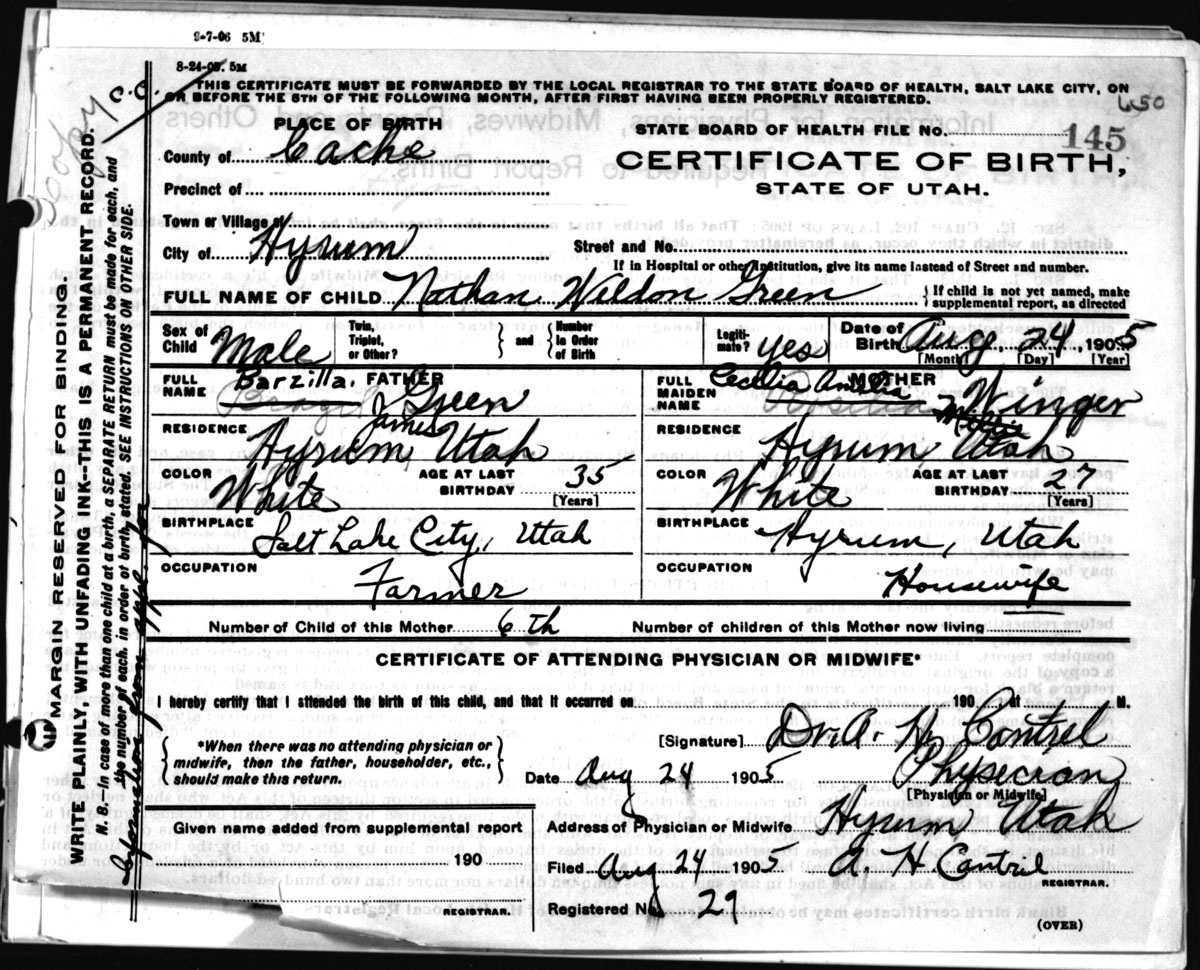 9-7-06 5M
8-24-05. 5M
C. C.
THIS CERTIFICATE MUST BE FORWARDED BY THE LOCAL REGISTRAR TO THE STATE BOARD OF HEALTH, SALT LAKE CITY, ON
OR BEFORE THE 5TH OF THE FOLLOWING MONTH, AFTER FIRST HAVING BEEN PROPERLY REGISTERED.
PLACE OF BIRTH
STATE BOARD OF HEALTH FILE NO. 145
County of Cache
CERTIFICATE OF BIRTH,
Precinct of
STATE OF UTAH.
Town or Village of
City of Hyrum
Street and No.
If in Hospital or other Institution, give its name instead of Street and number.
FULL NAME OF CHILD Nathan Wildon Green
} If child is not yet named, make supplemental report, as directed
Sex of Child Male
Twin, Triplet, or Other? } and { Number in Order of Birth
Legitimate? yes
Date of Birth Aug. 24, 1905
[Month] [Day] [Year]
FULL NAME Barzilla. FATHER
James Green
RESIDENCE
Hyrum, Utah
COLOR White
AGE AT LAST BIRTHDAY 35
[Years]
BIRTHPLACE
Salt Lake City, Utah
OCCUPATION
Farmer
FULL MAIDEN NAME MOTHER
Winger
RESIDENCE
Hyrum, Utah
COLOR White
AGE AT LAST BIRTHDAY 27
[Years]
BIRTHPLACE
Hyrum, Utah
OCCUPATION
Housewife
Number of Child of this Mother 6th
Number of children of this Mother now living
CERTIFICATE OF ATTENDING PHYSICIAN OR MIDWIFE*
I hereby certify that I attended the birth of this child, and that it occurred on 190 , at M.
{ *When there was no attending physician or midwife, then the father, householder, etc., should make this return. }
[Signature] Dr. A. H. Cantrel
Date Aug 24 1905
Physician
[Physician or Midwife]
Address of Physician or Midwife Hyrum Utah
Given name added from supplemental report
190
REGISTRAR.
Filed Aug 24 1905 A. H. Cantril
REGISTRAR.
Registered No 29
(OVER)
MARGIN RESERVED FOR BINDING.
WRITE PLAINLY, WITH UNFADING INK--THIS IS A PERMANENT RECORD.
N. B.—In case of more than one child at a birth, a SEPARATE RETURN must be made for each, and
the number of each, in order of birth, stated. SEE INSTRUCTIONS ON OTHER SIDE.